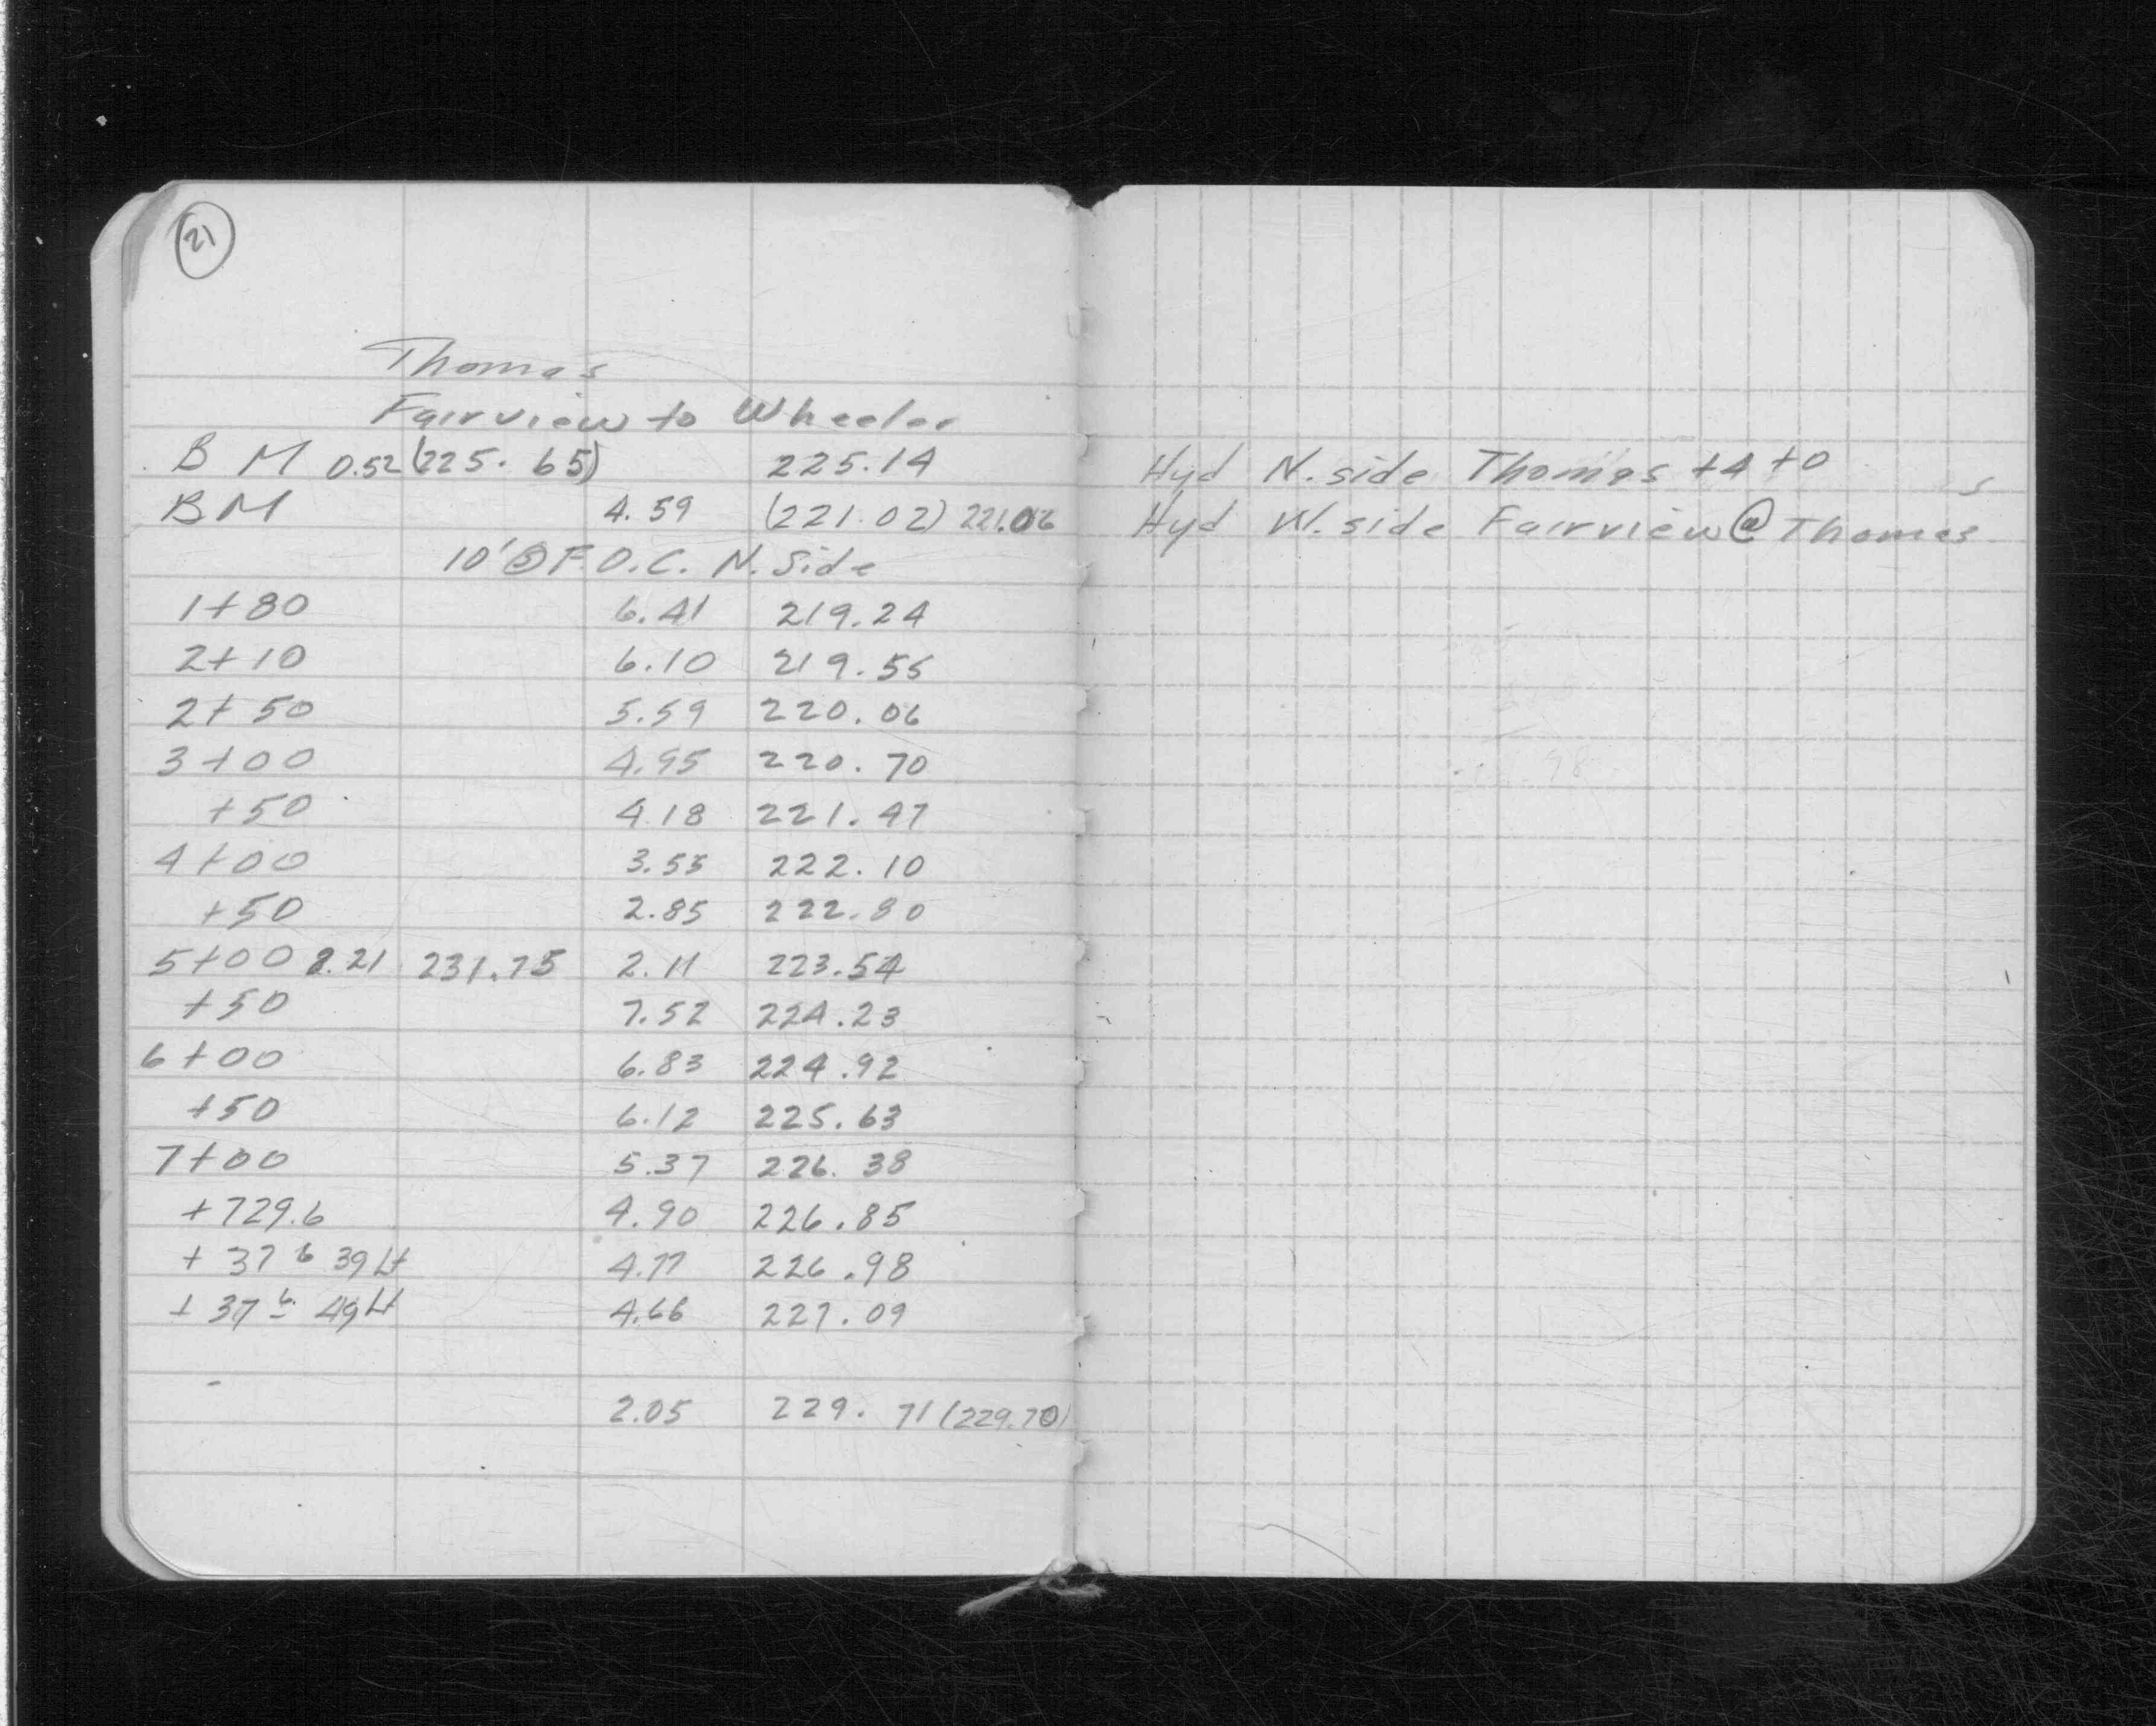 21
Thomas
Fairview to Wheeler
B M 0.52 (225.65) 225.14
BM 4.59 (221.02) 221.06
10' F.O.C. N. Side
1+80 6.41 219.24
2+10 6.10 219.55
2+50 5.59 220.06
3+00 4.95 220.70
+50 4.18 221.47
4+00 3.55 222.10
+50 2.85 222.80
5+00 8.21 231.75 2.11 223.54
+50 7.52 224.23
6+00 6.83 224.92
+50 6.12 225.63
7+00 5.37 226.38
+729.6 4.90 226.85
+ 37 6 39 Lt 4.77 226.98
+ 37 6 49 Lt 4.66 227.09
2.05 229.71 (229.70)
Hyd N. side Thomas +4 +0
Hyd W. side Fairview @ Thomas